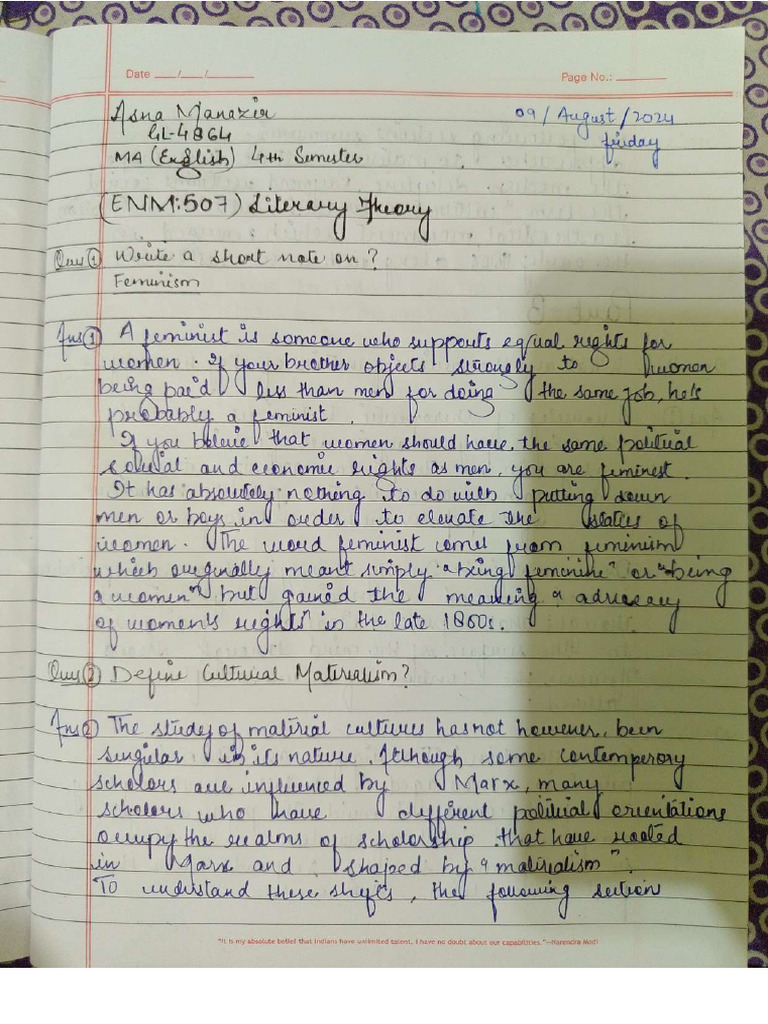 Date ___/___/______
Page No.: ______
Asna Manazir
09/August/2024
GL-4864
friday
MA (English) 4th Semester
(ENM:507) Literary Theory
Ques① Write a short note on?
Feminism
Ans① A feminist is someone who supports equal rights for
women. If your brother objects strongly to women
being paid less than men for doing the same job, he's
probably a feminist.
If you believe that women should have, the same political
social and economic rights as men, you are feminest.
It has absolutely nothing to do with putting down
men or boys in order to elevate the status of
women. The word feminist comes from feminism
which originally meant simply "being feminine" or "being
a women" but gained the meaning "advocacy
of women's rights" in the late 1860s.
Ques② Define Cultural Materialism?
Ans② The study of matirial cultures has not however, been
singular in its nature. Although some contemporary
scholars are influenced by Marx, many
scholors who have different political orientations
occupy the realms of scholorship that have rooted
in Marx and shaped by "matirealism".
To understand these shifts, the following section
"It is my absolute belief that Indians have unlimited talent. I have no doubt about our capabilities."—Narendra Modi